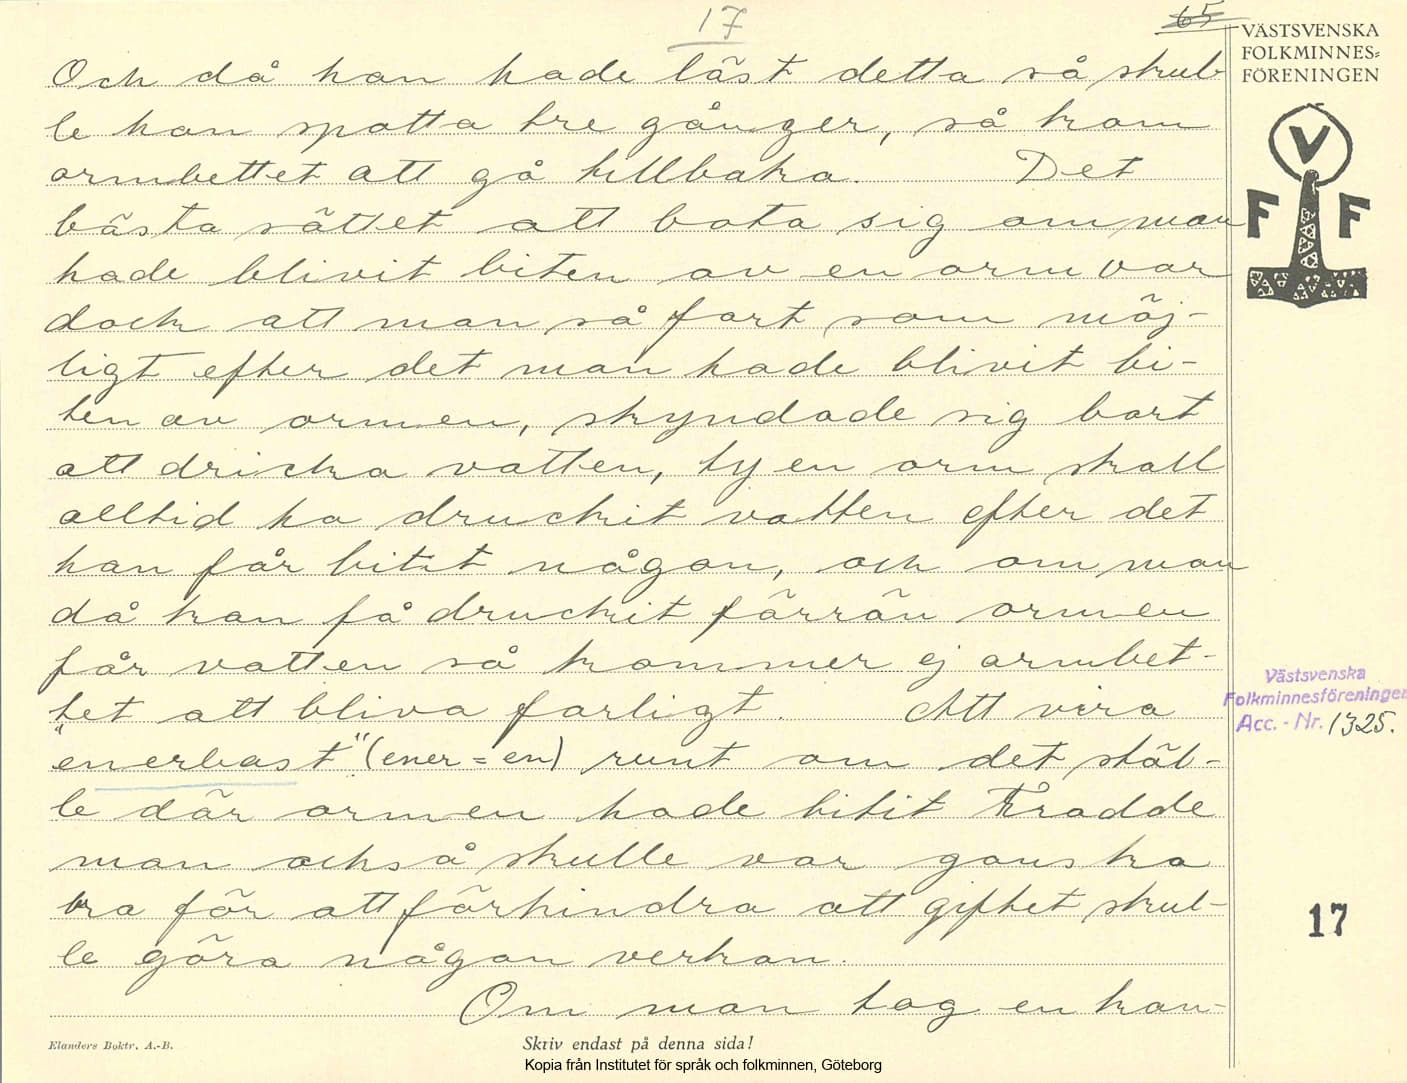 17
65
VÄSTSVENSKA
FOLKMINNES=
FÖRENINGEN
V
F F
Och då han hade läst detta så skul-
le han spotta tre gånger, så kom
ormbettet att gå tillbaka. Det
bästa sättet att bota sig om man
hade blivit biten av en orm var
dock att man så fort som möj-
ligt efter det man hade blivit bi-
ten av ormen, skyndade sig bort
att dricka vatten, ty en orm skall
alltid ha druckit vatten efter det
han får bitit någon, och om man
då kan få druckit förrän ormen
får vatten så kommer ej ormbet-
tet att bliva farligt. Att vira
"enerbast" (ener = en) runt om det stäl-
le där ormen hade bitit trodde
man också skulle var ganska
bra för att förhindra att giftet skul-
le göra någon verkan.
Om man tog en kan-
Västsvenska
Folkminnesföreningen
Acc. - Nr. 1325.
17
Elanders Boktr. A.-B.
Skriv endast på denna sida!
Kopia från Institutet för språk och folkminnen, Göteborg